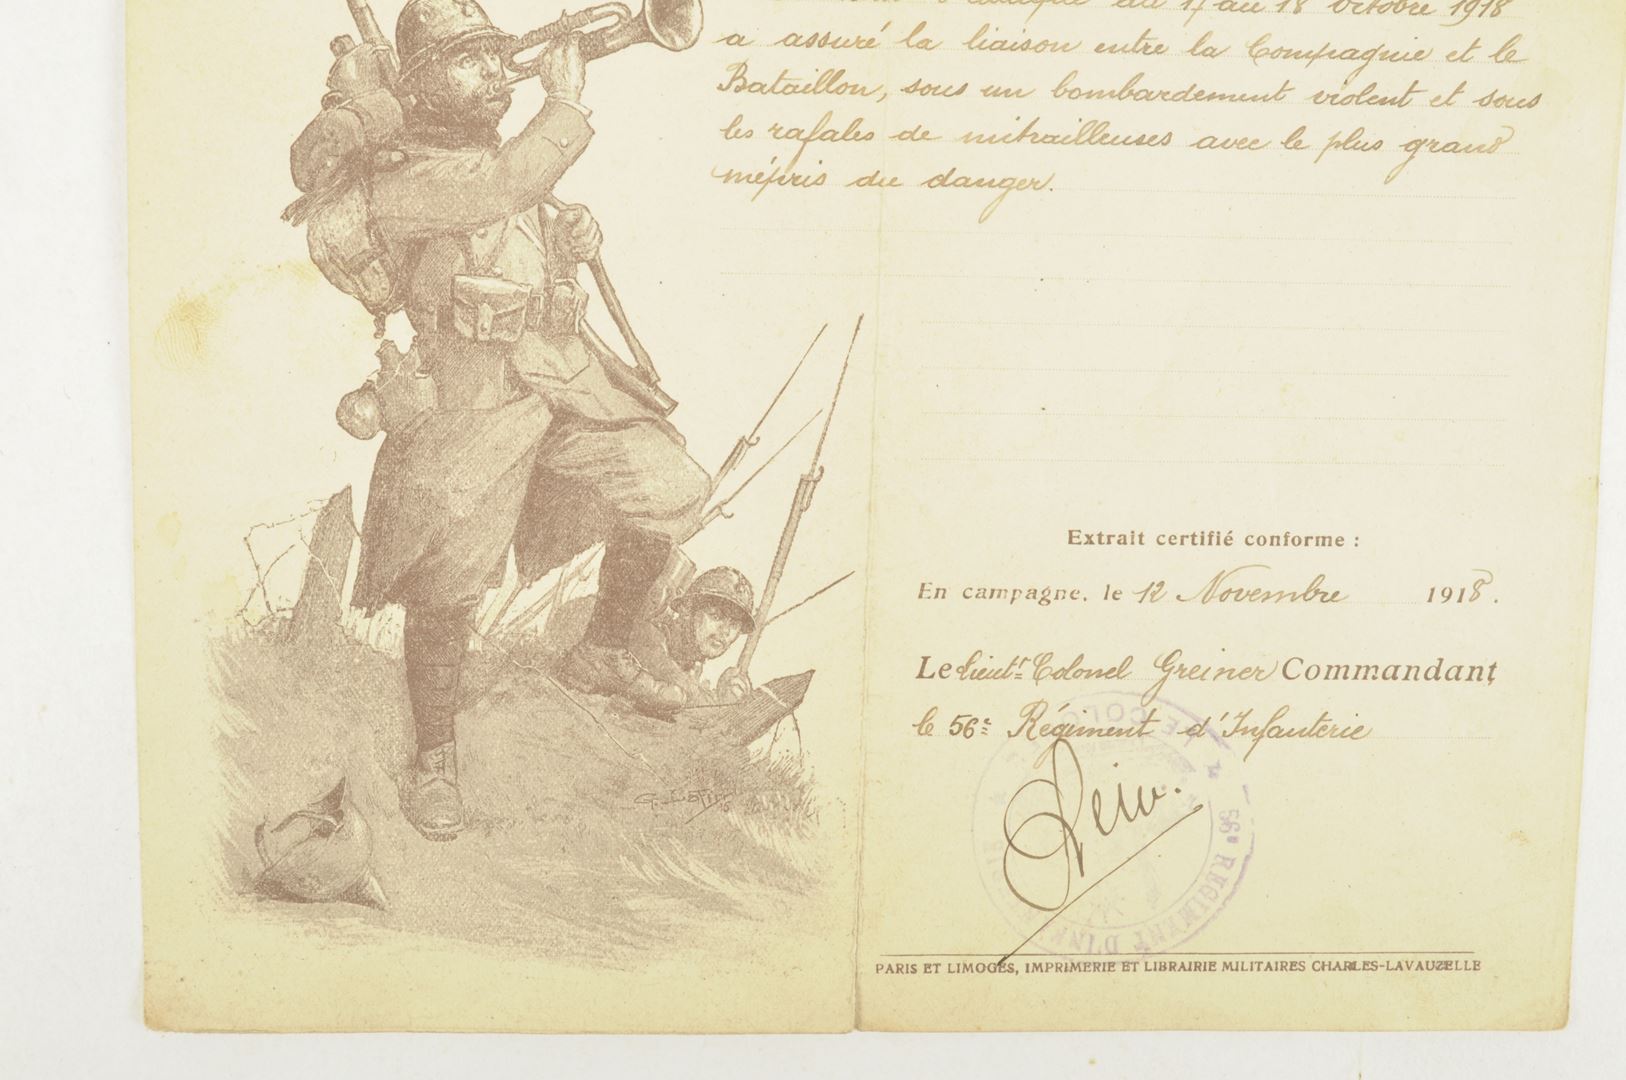 du 17 au 18 Octobre 1918
a assuré la liaison entre la Compagnie et le
Bataillon, sous un bombardement violent et sous
les rafales de mitrailleuses avec le plus grand
mépris du danger.
Extrait certifié conforme :
En campagne, le 12 Novembre 1918.
Le Lieut.t Colonel Greiner Commandant
le 56e Régiment d'Infanterie
56e RÉGIMENT D'INF
PARIS ET LIMOGES, IMPRIMERIE ET LIBRAIRIE MILITAIRES CHARLES-LAVAUZELLE